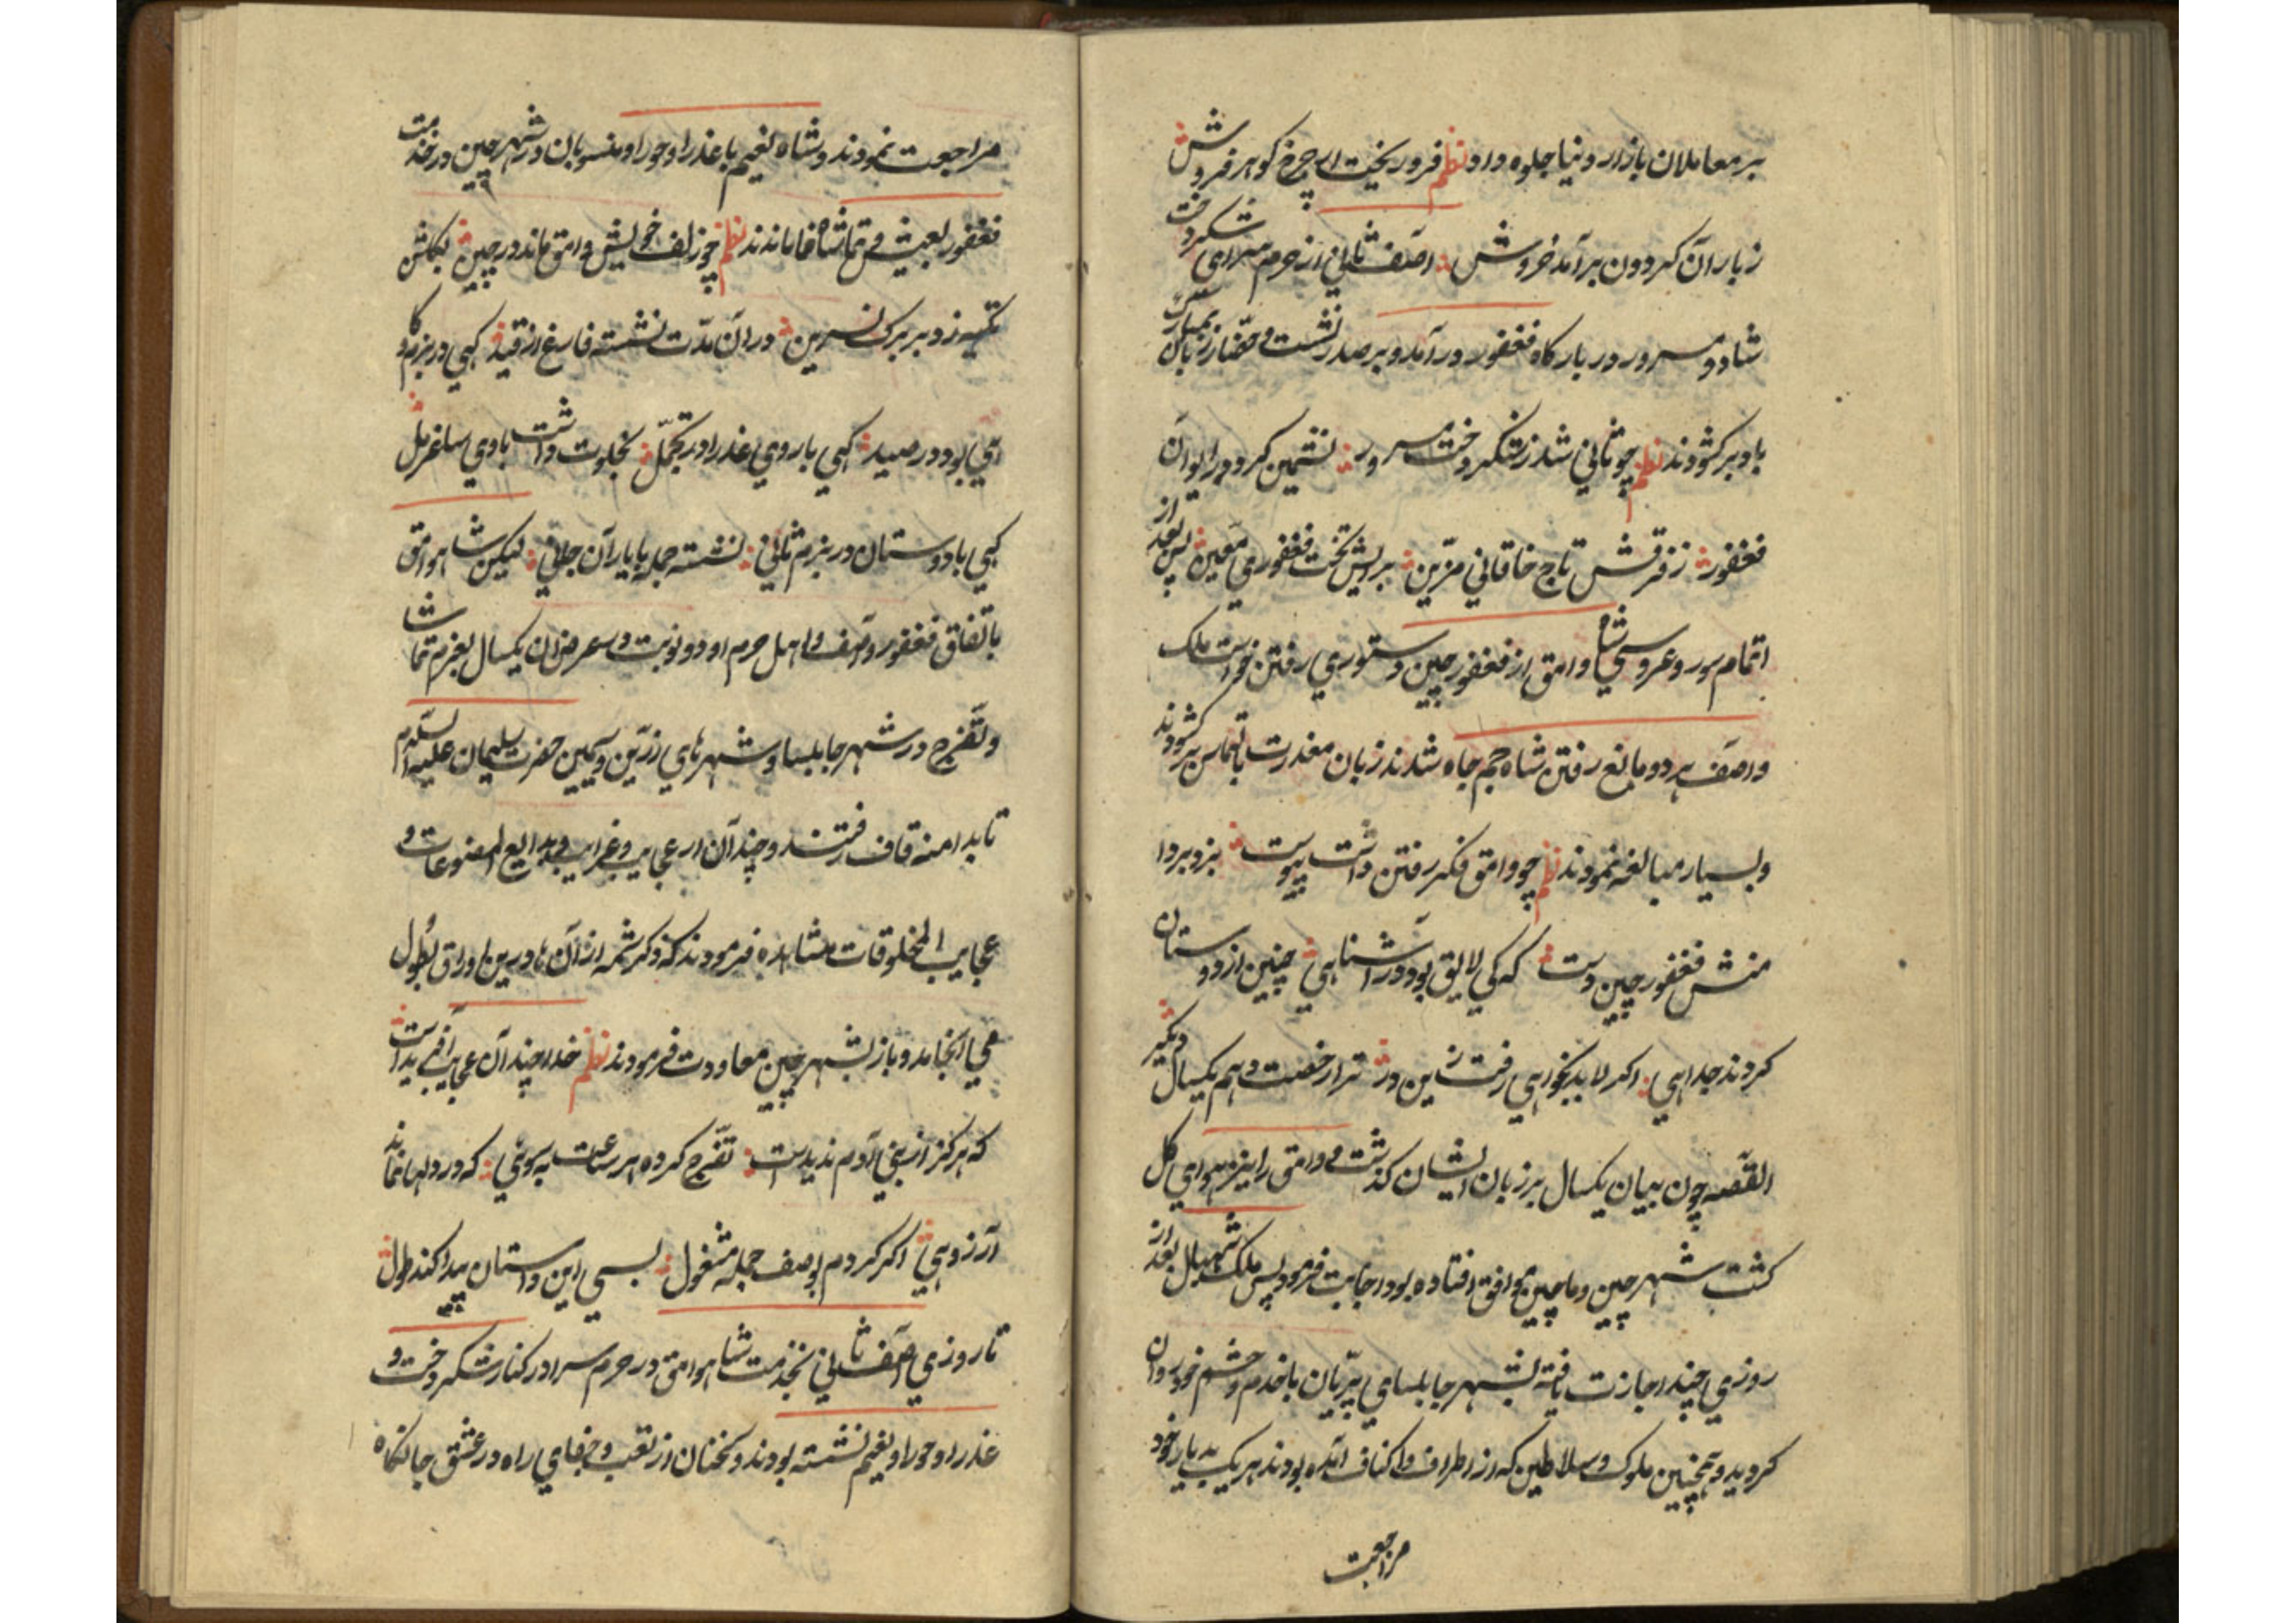 بر معاملان بازار دنیا جلوه داد نظم فرو ریخت این چرخ کوهر فروش
ز باران کردون برآمد خروش آصف ثانی از حرم سرای شکردخت
شاد و مسرور در بارکاه فغفور درآمد و بر صدر نشست و حضار زبان بمبارک
باد برکشودند نظم چو ثانی شد ز شکردخت مسرور نشیمن کرد در ایوان
فغفور ز فرقش تاج خاقانی مزین برایش تخت فغفوری معین پس بعد از
اتمام سور و عروسی شاه وامق از فغفور چین دستوری رفتن خواست ملک
و آصف هر دو مانع رفتن شاه جم جاه شدند زبان معذرت بالتماس برکشودند
و بسیار مبالغه نمودند نظم چو وامق فکر رفتن داشت پیوست بزد بر دا
منش فغفور چین دست که کی لایق بود در آشنایی چنین از دوستان
کردند جدایی اکر لابد بخواهی رفت زین در ترا رخصت دهم یکسال دیکر
القصه چون بیان یکسال بر زبان ایشان کذشت و وامق را نیز هوای کل
کشت شهر چین و ماچین موافق افتاده بود اجابت فرمود پس ملک شهبال بعد از
روزی چند اجازت یافته بشهر جابلسای پریان با خدم و حشم خود روان
کردید و همچنین ملوک و سلاطین که از اطراف و اکناف آمده بودند هر یک بدیار خود
مراجعت
مراجعت نمودند و شاه نعیم با عذرا و حورا و منسوبان در شهر چین در خدمت
فغفور بعیش و تماشا ماندند نظم چو زلف خویش وامق ماند در چین بکامش
تکیه زد بر برک نسرین در آن مدت نشسته فارغ از قید کهی در بزم و کا
هی بود در صید کهی با روی عذرا در تجمل بخلوت داشت بادی ساغر مل
کهی با دوستان در بزم ثانی نشسته جمله با یاران جانی لیکن شاه وامق
باتفاق فغفور و آصف و اهل حرم او دو نوبت در عرض آن یکسال بعزم تماشا
و تفرج در شهر جابلسا و شهرهای زرین و سیمین حضرت سلیمان علیه السلام
تا بدامنه قاف رفتند و چندآن از عجایب و غرایب و بدایع المصنوعات و
عجایب المخلوقات مشاهده فرمودند که ذکر شمه از آن ها درین اوراق بطول
می انجامد و باز بشهر چین معاودت فرمودند نظم خدا چندآن عجایب آفریدست
که هرکز از بنی آدم ندیدست تفرج کرده هر ساعت بسوئی که در دلها نماند
آرزویی اکر کردم بوصف جمله مشغول بسی این داستان پیدا کند طول
تا روزی آصف ثانی بخدمت شاه وامق در حرم سرا در کنار شکردخت و
عذرا و حورا و نعیم نشسته بودند و سخنان از تعب و جفای راه در عشق جانکاه